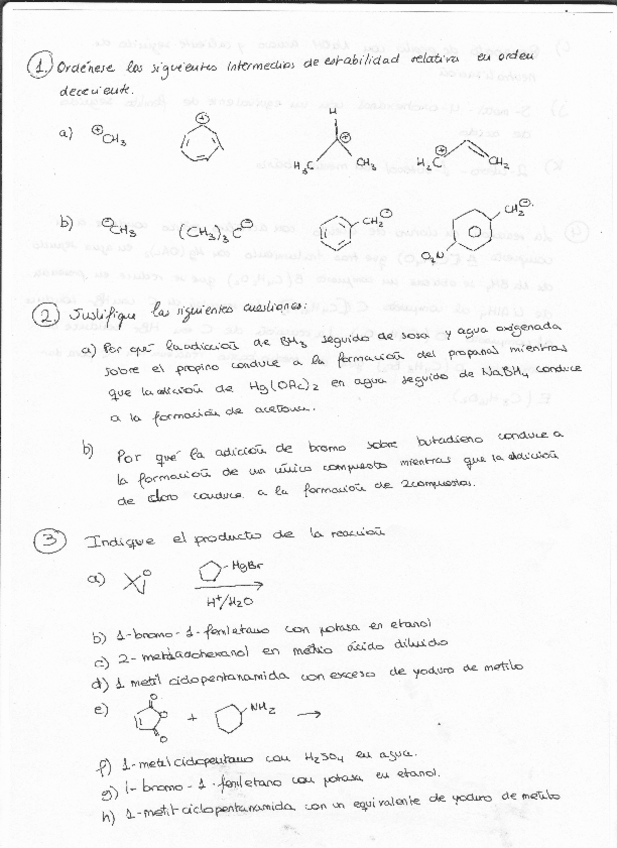 1. Ordénese los siguientes intermedios de estabilidad relativa en orden
dececiente.
a) ⊕CH3 ⊕ H ⊕ H3C CH3 H2C ⊕ CH2
b) ⊖CH3 (CH3)3C⊖ CH2⊖ O2N CH2⊖
2. Justifique las siguientes cuestiones:
a) Por qué la adición de BH3 seguido de sosa y agua oxigenada
sobre el propino conduce a la formación del propanal mientras
que la adición de Hg(OAc)2 en agua seguido de NaBH4 conduce
a la formación de acetona.
b) Por qué la adición de bromo sobre butadieno conduce a
la formación de un único compuesto mientras que la adición
de cloro conduce a la formación de 2 compuestos.
3 Indique el producto de la reacción
a) O HgBr
H+/H2O
b) 1-bromo-1-feniletano con potasa en etanol
c) en medio ácido diluido
d) 1 metil ciclopentanamida con exceso de yoduro de metilo
e) O O O + NH2 →
f) con H2SO4 en agua.
g) 1-bromo-1-feniletano con potasa en etanol.
h) 1-metil-ciclopentanamida con un equivalente de yoduro de metilo